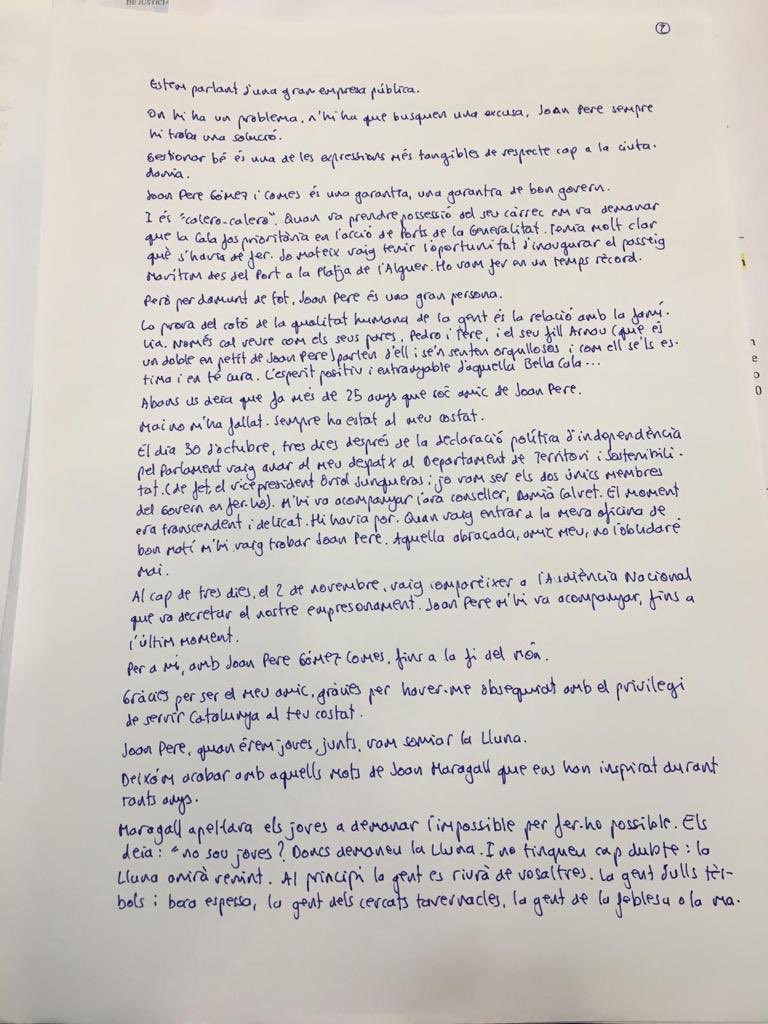 DE JUSTÍCIA
2
Estem parlant d'una gran empresa pública.
On hi ha un problema, n'hi ha que busquen una excusa, Joan Pere sempre
hi troba una solució.
Gestionar bé és una de les expressions més tangibles de respecte cap a la ciuta-
dania.
Joan Pere Gómez i Comes és una garantia, una garantia de bon govern.
I és "calero-calero". Quan va prendre possessió del seu càrrec em va demanar
que la Cala fos prioritària en l'acció de Ports de la Generalitat. Tenia molt clar
què s'havia de fer. Jo mateix vaig tenir l'oportunitat d'inaugurar el passeig
marítim des del Port a la Platja de l'Alguer. Ho vam fer en un temps rècord.
Però per damunt de tot, Joan Pere és una gran persona.
La prova del cotó de la qualitat humana de la gent és la relació amb la famí-
lia. Només cal veure com els seus pares, Pedro i Tere, i el seu fill Arnau (que és
un doble en petit de Joan Pere) parlen d'ell i se'n senten orgullosos i com ell se'ls es-
tima i en té cura. L'esperit positiu i entranyable d'aquella Bella Cala...
Abans us deia que fa més de 25 anys que sóc amic de Joan Pere.
Mai no m'ha fallat. Sempre ha estat al meu costat.
El dia 30 d'octubre, tres dies després de la declaració política d'independència
pel Parlament vaig anar al meu despatx al Departament de Territori i Sostenibili-
tat. (de fet, el vicepresident Oriol Junqueras i jo vam ser els dos únics membres
del Govern en fer-ho). M'hi va acompanyar l'ara conseller, Damià Calvet. El moment
era transcendent i delicat. Hi havia por. Quan vaig entrar a la meva oficina de
bon matí m'hi vaig trobar Joan Pere. Aquella abraçada, amic meu, no l'oblidaré
mai.
Al cap de tres dies, el 2 de novembre, vaig comparèixer a l'Audiència Nacional
que va decretar el nostre empresonament. Joan Pere m'hi va acompanyar, fins a
l'últim moment.
Per a mi, amb Joan Pere Gómez Comes, fins a la fi del món.
Gràcies per ser el meu amic, gràcies per haver-me obsequiat amb el privilegi
de servir Catalunya al teu costat.
Joan Pere, quan érem joves, junts, vam somiar la Lluna.
Deixa'm acabar amb aquells mots de Joan Maragall que ens han inspirat durant
tants anys.
Maragall apel·lava els joves a demanar l'impossible per fer-ho possible. Els
deia: "no sou joves? Doncs demaneu la Lluna. I no tingueu cap dubte: la
Lluna anirà venint. Al principi la gent es riurà de vosaltres. La gent d'ulls tèr-
bols i bava espessa, la gent dels cercats tavernacles, la gent de la feblesa a la ma-